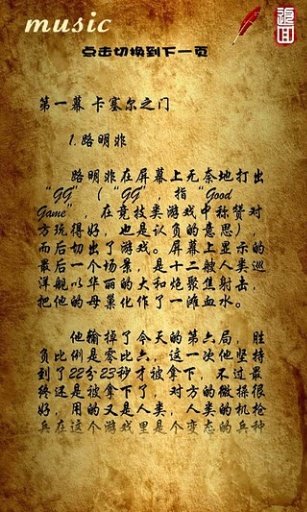 music
返回
点击切换到下一页
第一幕 卡塞尔之门
1.路明非
路明非在屏幕上无奈地打出
“GG”（“GG”指“Good
Game”，在竞技类游戏中称赞对
方玩得好，也是认负的意思），
而后切出了游戏。屏幕上显示的
最后一个场景，是十二艘人类巡
洋舰以华丽的大和炮聚焦射击，
把他的母巢化作了一滩血水。
他输掉了今天的第六局，胜
负比例是零比六，这一次他坚持
到了22分23秒才被拿下，不过最
终还是被拿下了，对方的微操很
好，用的又是人类，人类的机枪
兵在这个游戏里是个变态的兵种